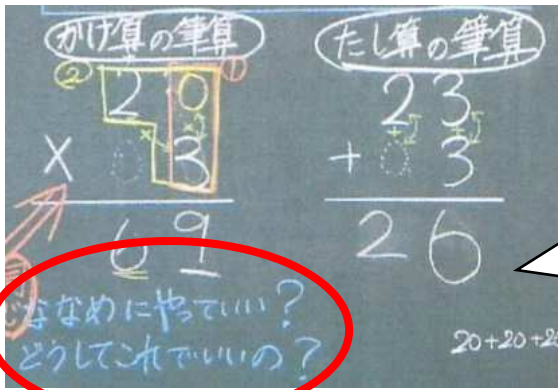 かけ算の筆算
② ①
2 0
× 0 3
6 9
ななめにやっていい?
どうしてこれでいいの?
たし算の筆算
2 3
+ 0 3
2 6
20+20+20